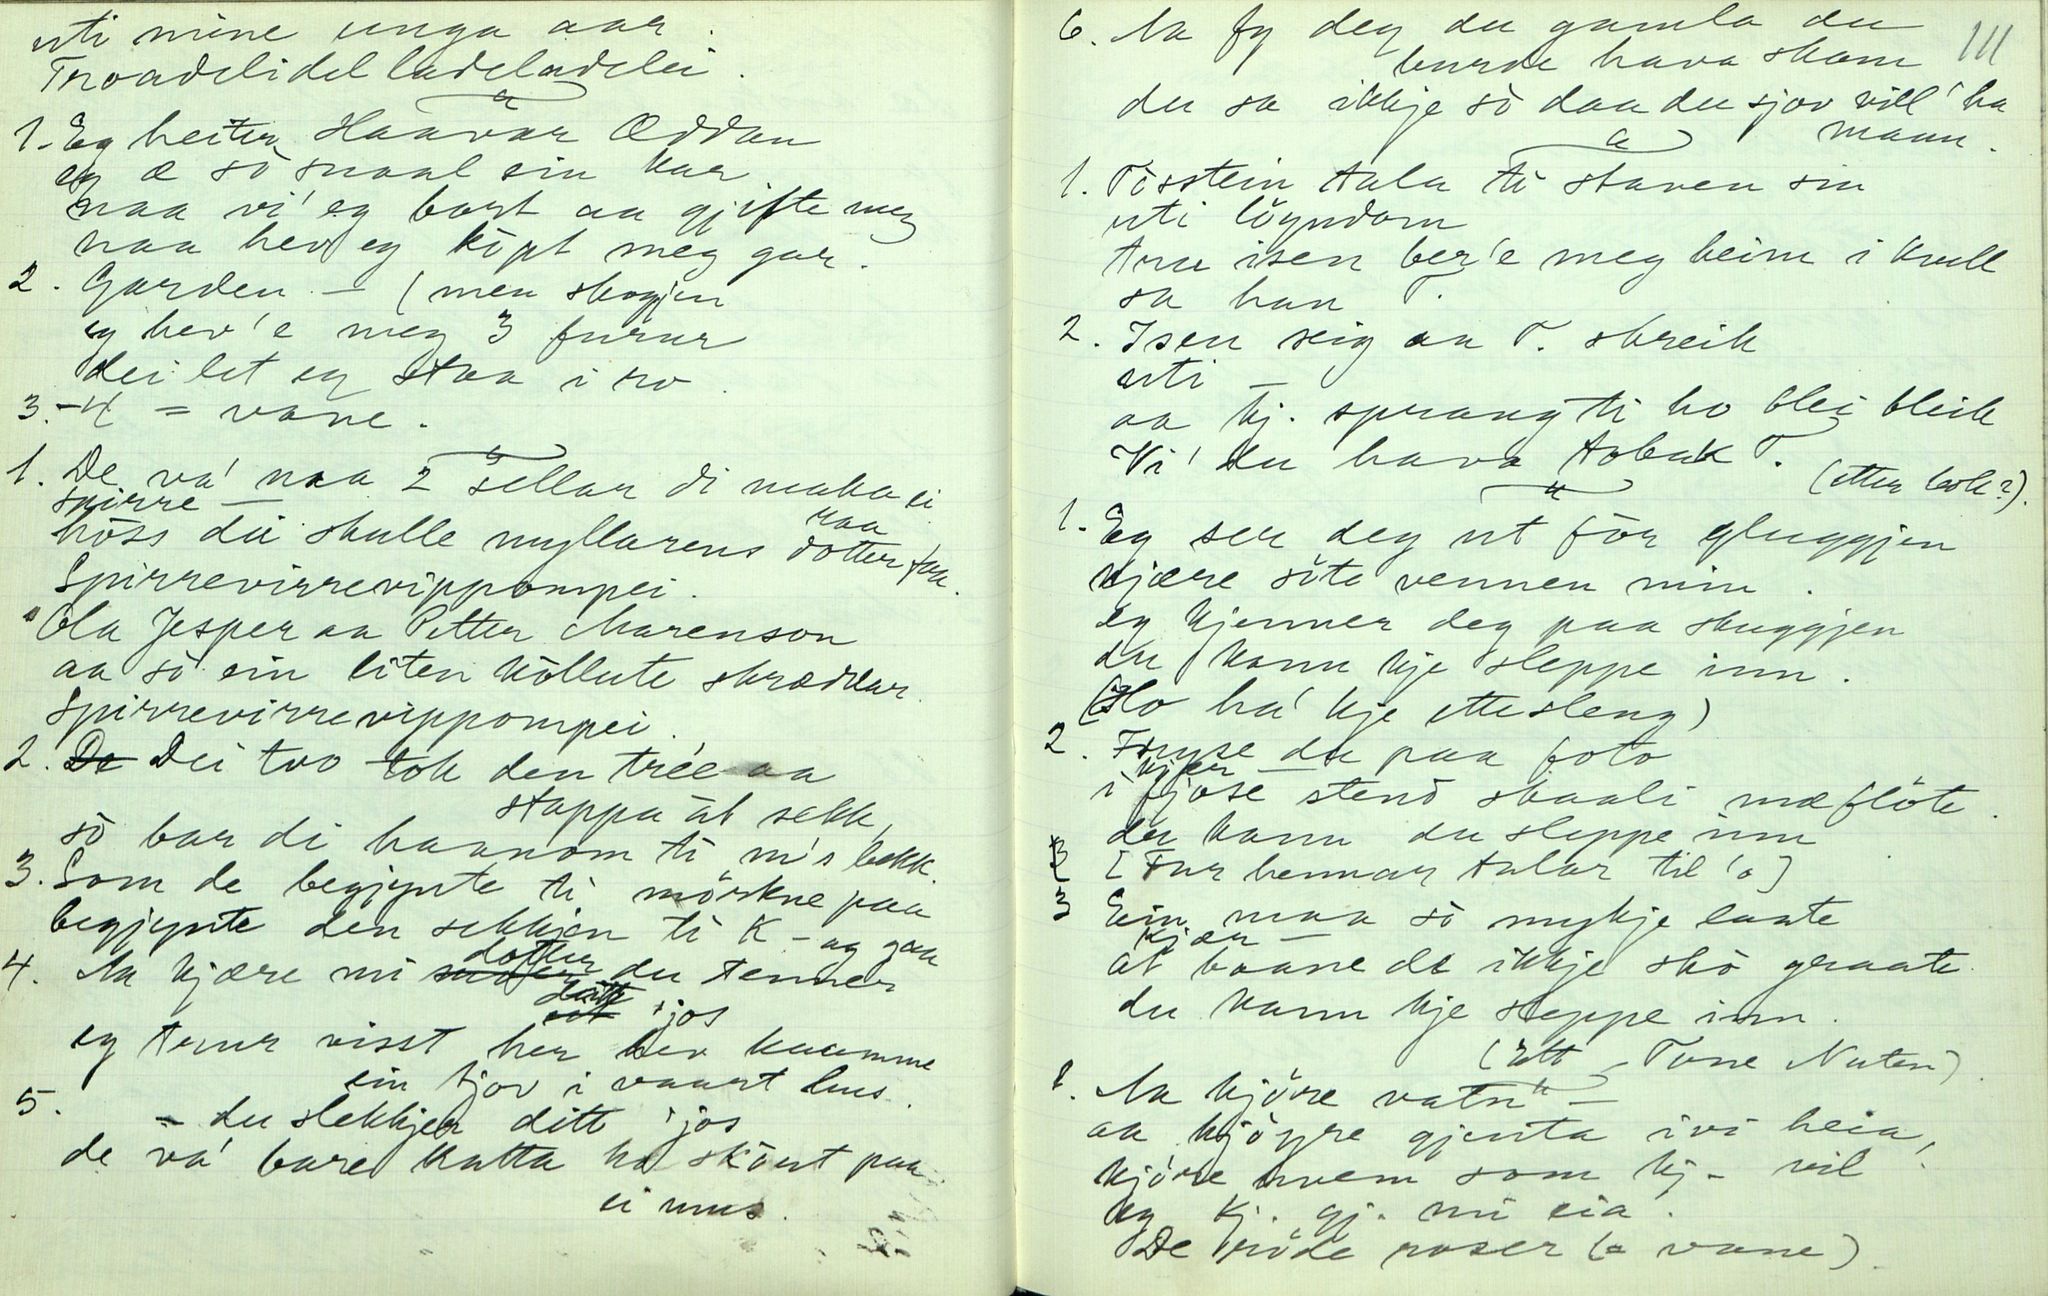 uti mine unga aar.
Troadelidel ladeladelei.
1. Eg heiter Haavar Øddan
eg æ so snaal ein kar
naa vi' eg bort aa gjifte meg
naa hev eg köpt meg gar.
2. Garden – (men skogjen
eg hev'e meg 3 furur
dei let eg staa i ro.
3. – 4 = vane.
1. De va' naa 2 sellar di maka ei
spirre –
höss di skulle myllarens dotter faa
raa
Spirrevirrevippompei.
Ola Jesper aa Petter Marenson
aa so ein liten köllute skræddar.
Spirrevirrevippompei.
2. De Dei tvo tok den tree aa
stappa at sekk
so bar di haanom ti m's bekk.
3. Som de begjynte ti mörkne paa
begjynte den sekkjen ti K – ag gaa
4. Aa kjære mi dotter du tenner
ditt 'jos
eg trur visst her hev kaamme
ein tjov i vaart hus.
5. – du slekkjer ditt 'jos
de va' bare katta ho sköut paa
ei mus.
6. Aa fy deg du gamla du 111
burde hava skam
du sa ikkje so daa du sjov vill' ha
mann.
1. Tosstein tala ti staven sin
uti löyndom
Trur isen ber'e meg heim i kvell
sa han T.
2. Isen seig aa T. skreik
uti –
aa kj. sprang ti ho blei bleik
Vi' du hava tobak T.
(etter bok?).
1. Eg ser deg ut för gluggjen
kjære söte vennen min.
eg kjenner deg paa skuggjen
du kann kje sleppe inn.
(Ho ha' kje ettesleng)
2. Fryse du paa foto
kjær –
i fjose stend skaali mæ flöte.
der kann du sleppe inn
[Far hennar talar til 'o]
3 Ein maa so mykje laate
kjær –
at baane de ikkje sko graate.
du kann kje sleppe inn.
(Ett – Tone Nuten).
1. Aa kjöre vatn –
aa kjöyre gjenta ivi heia,
kjöre hvem som kj – vil
eg kj. gj. mi eia.
De röde roser (a vane)